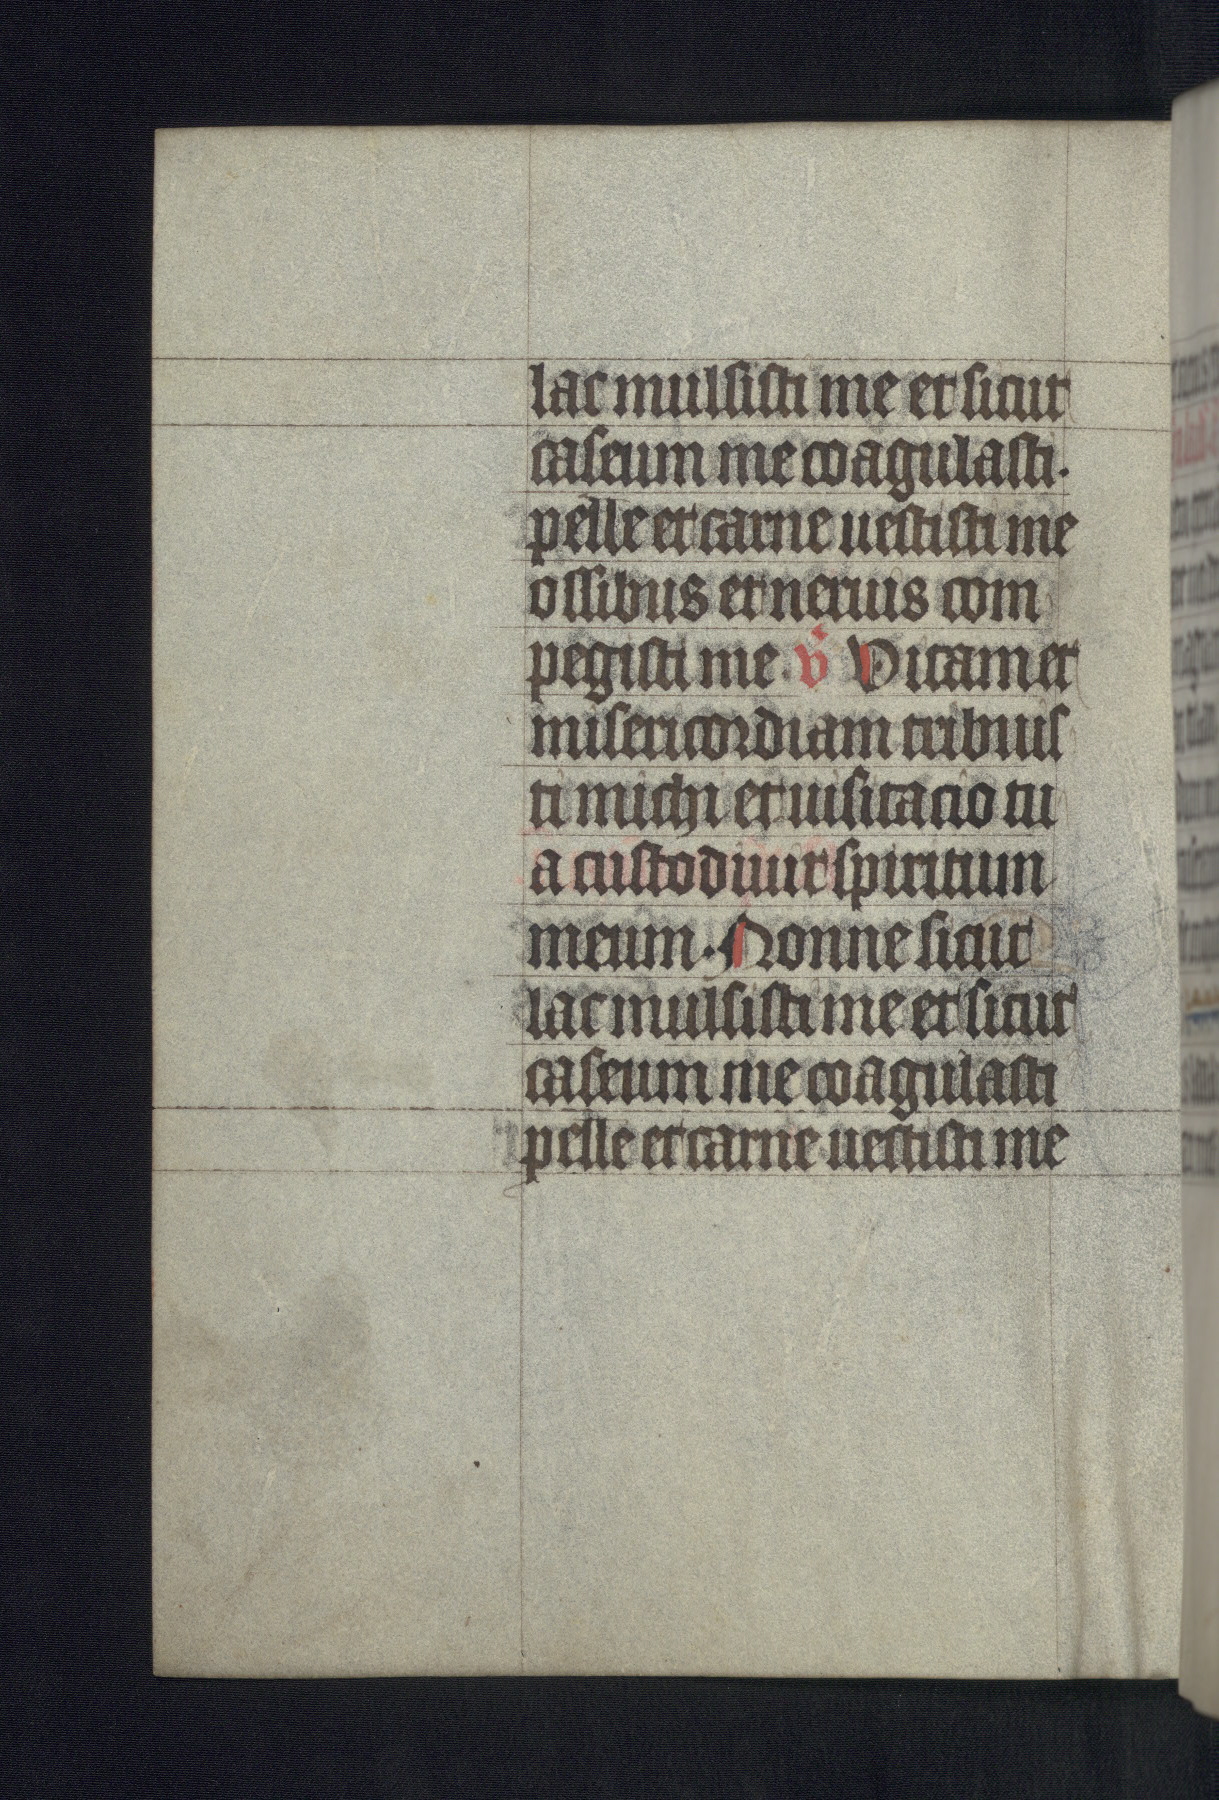 lac mulsisti me et sicut
caseum me coagulasti.
pelle et carne uestisti me
ossibus et neruis com
pegisti me. v̉ Vitam et
misericordiam tribuis
ti michi et uisitacio tu
a custodiuit spiritum
meum. Nonne sicut
lac mulsisti me et sicut
caseum me coagulasti
pelle et carne uestisti me